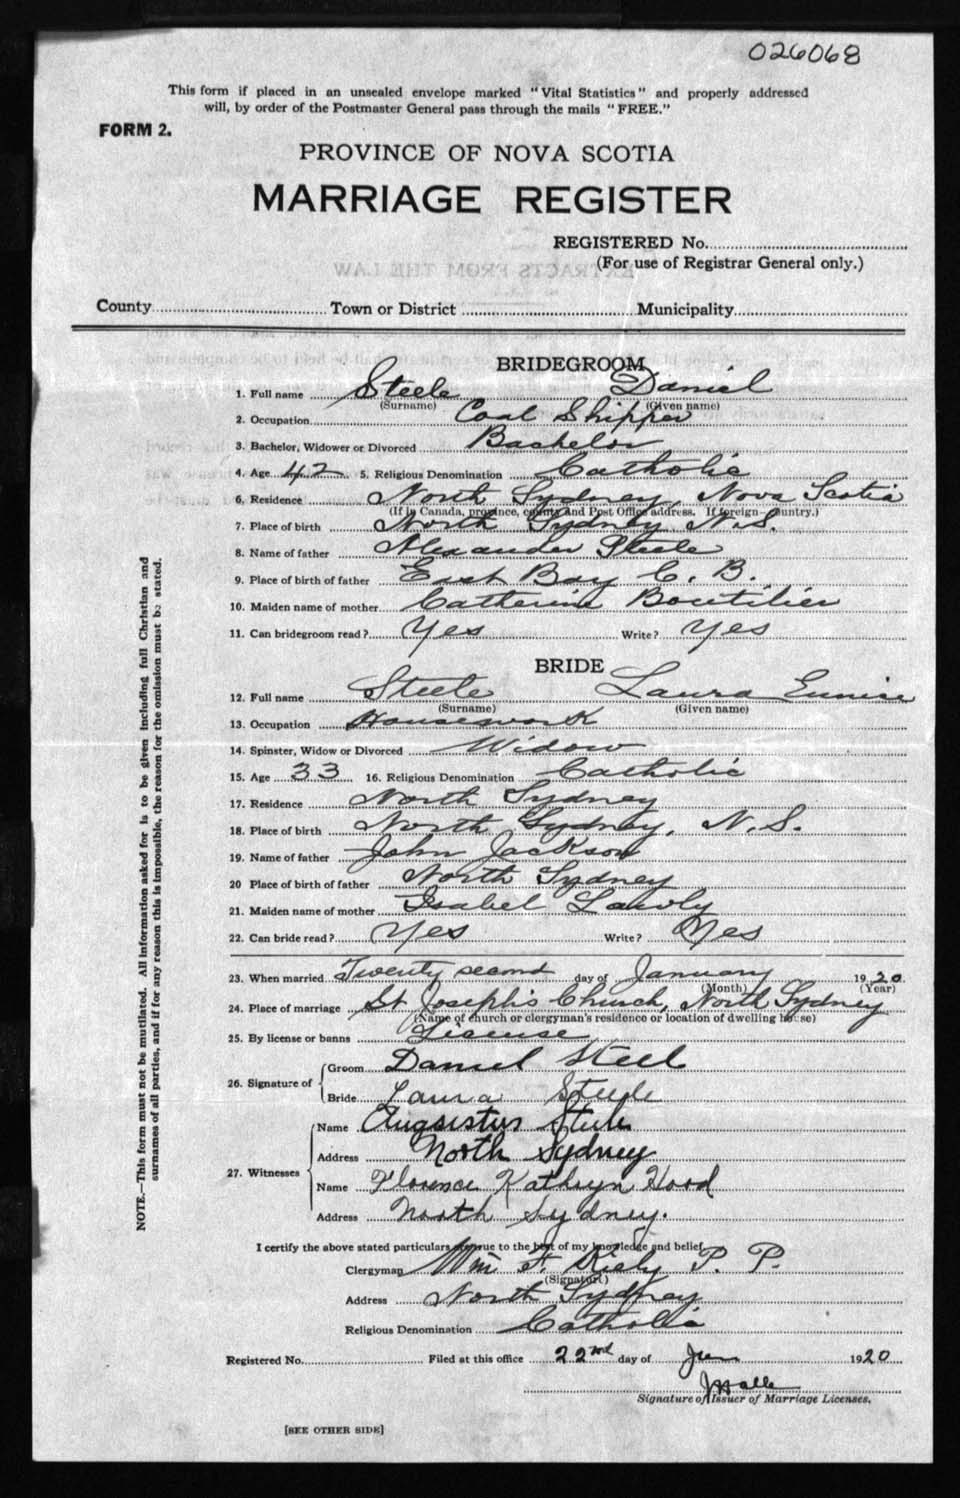 026068
This form if placed in an unsealed envelope marked "Vital Statistics" and properly addressed
will, by order of the Postmaster General pass through the mails "FREE."
FORM 2.
PROVINCE OF NOVA SCOTIA
MARRIAGE REGISTER
REGISTERED No.
(For use of Registrar General only.)
EXTRACTS FROM THE LAW
County Town or District Municipality
BRIDEGROOM
1. Full name Steele Daniel
(Surname) (Given name)
2. Occupation Coal Shipper
3. Bachelor, Widower or Divorced Bachelor
4. Age 42 5. Religious Denomination Catholic
6. Residence North Sydney, Nova Scotia
(If in Canada, province, county and Post Office address. If foreign—country.)
7. Place of birth North Sydney N.S.
8. Name of father Alexander Steele
9. Place of birth of father East Bay C. B.
10. Maiden name of mother Catherine Boutilier
11. Can bridegroom read? Yes Write? Yes
BRIDE
12. Full name Steele Laura Eunice
(Surname) (Given name)
13. Occupation Housework
14. Spinster, Widow or Divorced Widow
15. Age 33 16. Religious Denomination Catholic
17. Residence North Sydney
18. Place of birth North Sydney, N.S.
19. Name of father John Jackson
20 Place of birth of father North Sydney
21. Maiden name of mother Isabel Lawly
22. Can bride read? Yes Write? Yes
23. When married Twenty second day of January 1920
(Month) (Year)
24. Place of marriage St Joseph's Church, North Sydney
(Name of church or clergyman's residence or location of dwelling house)
25. By license or banns License
26. Signature of Groom Daniel Steel
Bride Laura Steele
27. Witnesses Name Augustus Steele
Address North Sydney
Name Florence Kathryn Hood
Address North Sydney.
I certify the above stated particulars are true to the best of my knowledge and belief,
Clergyman Wm F. Kiely P. P.
(Signature)
Address North Sydney
Religious Denomination Catholic
Registered No. Filed at this office 22nd day of Jan 1920
Signature of Issuer of Marriage Licenses.
[SEE OTHER SIDE]
NOTE.—This form must not be mutilated. All information asked for is to be given including full Christian and
surnames of all parties, and if for any reason this is impossible, the reason for the omission must be stated.